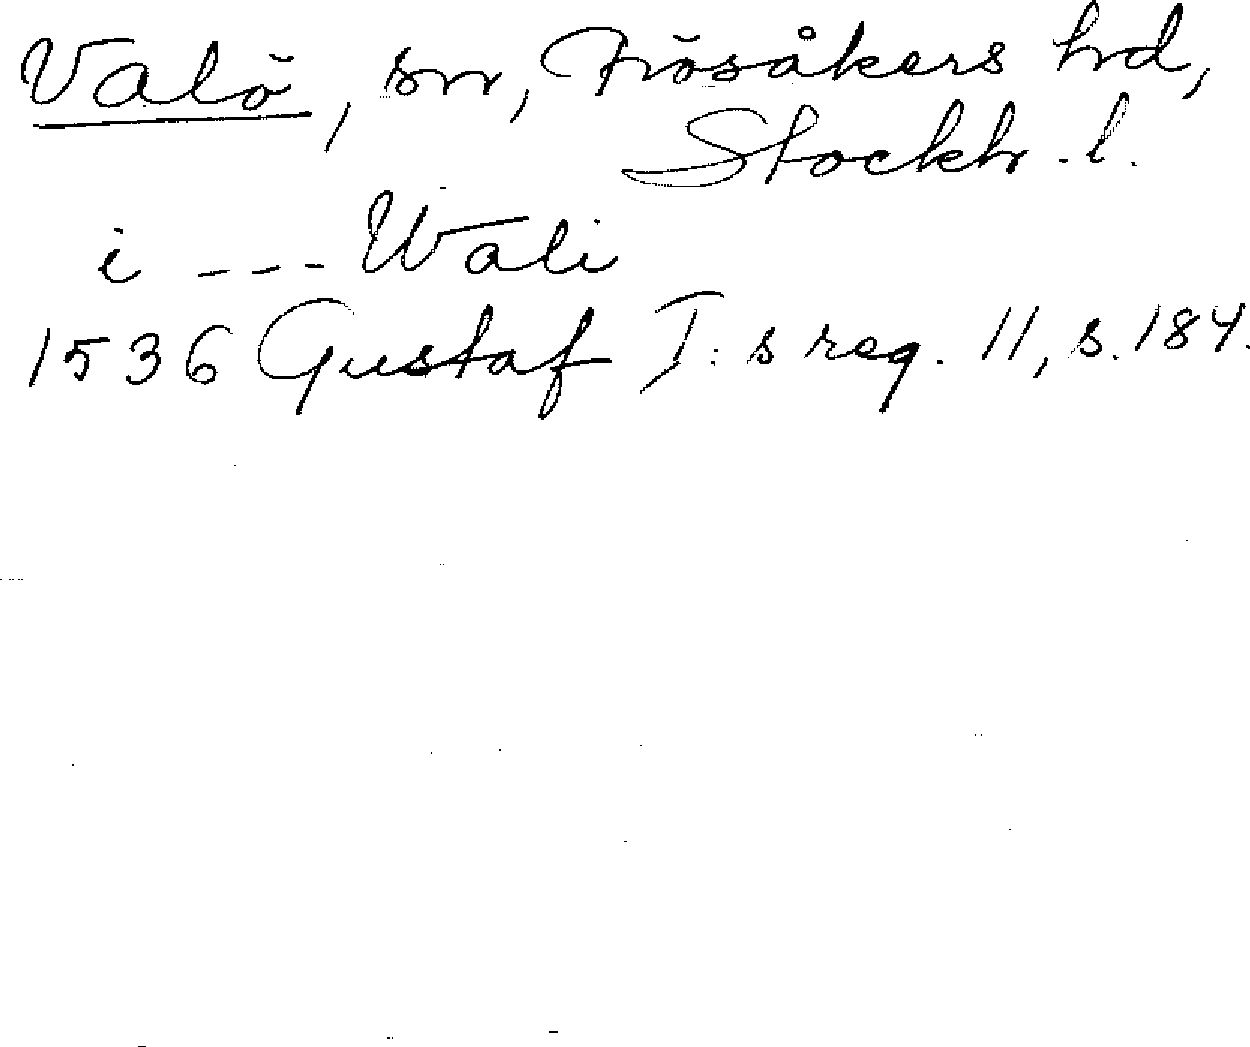 Valö, sn, Frösåkers hrd,
Stockh. l.
i --- Wali
1536 Gustaf I:s reg. 11, s. 184.